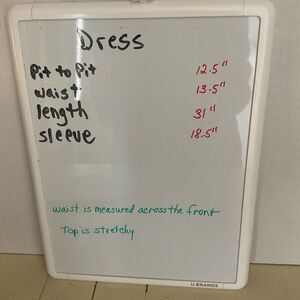 Dress
Pit to Pit 12.5"
waist 13.5"
length 31"
sleeve 18.5"
waist is measured across the front
Top is stretchy
U BRANDS